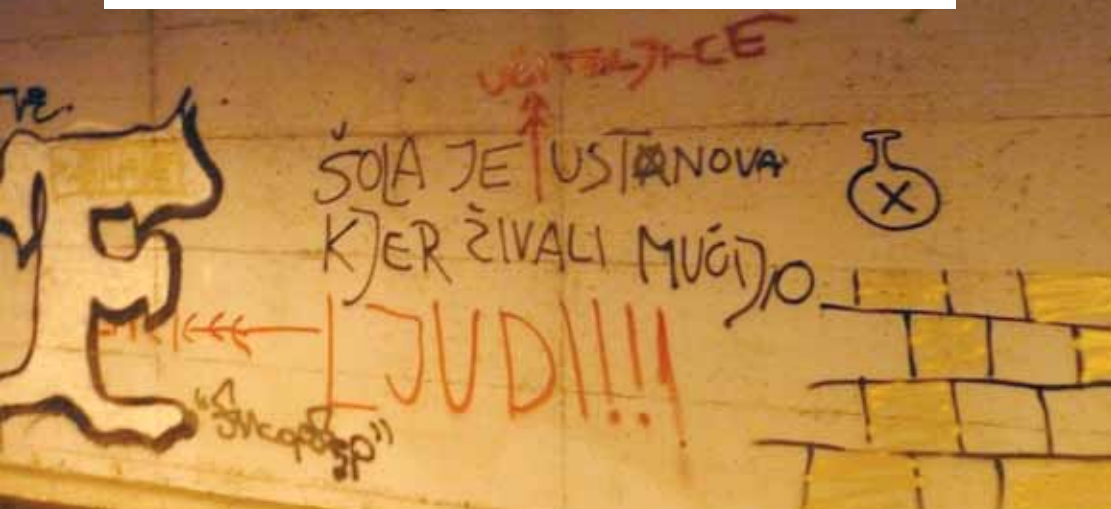 UČITELJICE
ŠOLA JE USTANOVA
KJER ŽIVALI MUČIJO
LJUDI!!!